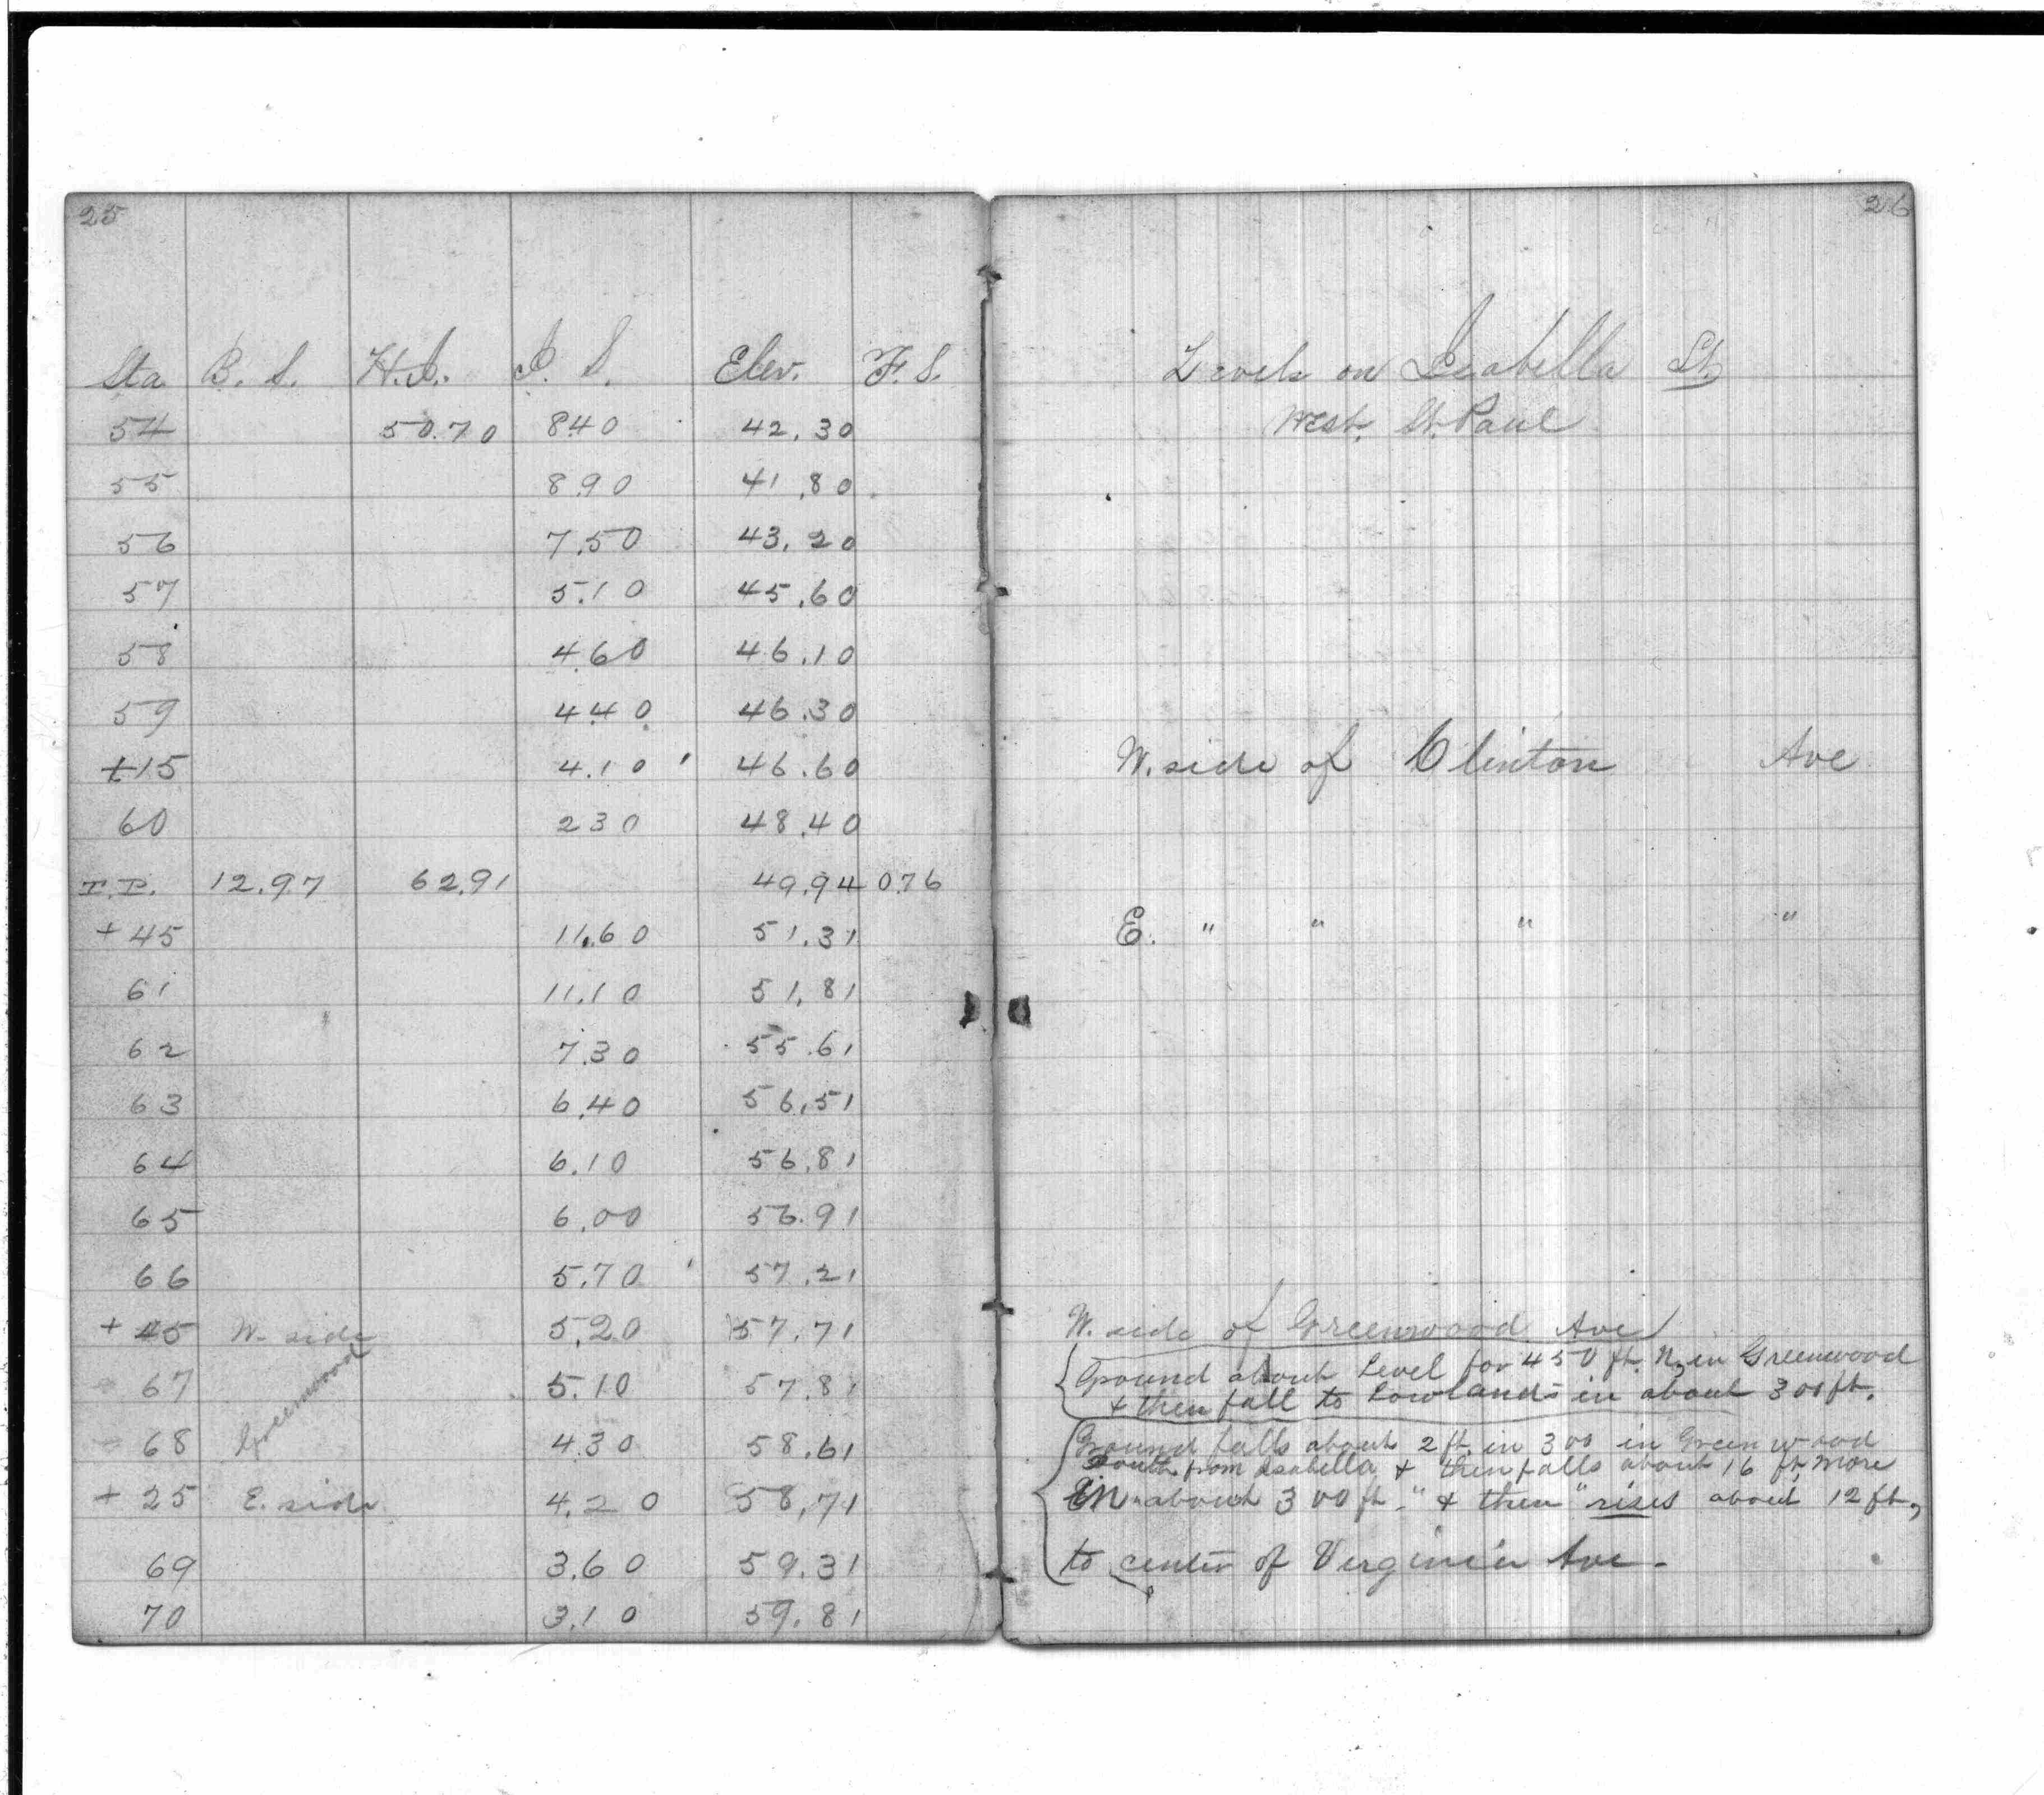 25
Sta. B. S. H.I. I. S. Elev. F. S.
54 50.70 8.40 42.30
55 8.90 41.80
56 7.50 43.20
57 5.10 45.60
58 4.60 46.10
59 4.40 46.30
+15 4.10 46.60
60 2.30 48.40
T.P. 12.97 62.91 49.94 0.76
+45 11.60 51.31
61 11.10 51.81
62 7.30 55.61
63 6.40 56.51
64 6.10 56.81
65 6.00 56.91
66 5.70 57.21
+45 W. side 5.20 57.71
67 Greenwood 5.10 57.81
68 4.30 58.61
+25 E. side 4.20 58.71
69 3.60 59.31
70 3.10 59.81
26
Levels on Isabella St.
West. St. Paul
W. side of Clinton Ave
E. " " " "
W. side of Greenwood Ave
Ground about Level for 450 ft. N, in Greenwood
& then fall to Lowlands in about 300 ft.
Ground falls about 2 ft. in 300 in Greenwood
South from Isabella & then falls about 16 ft. more
in about 300 ft. " & then " rises about 12 ft,
to center of Virginia Ave.